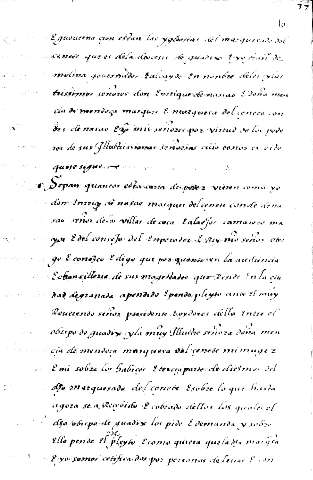 E governaçion estan las yglesias del marquesado del
çenete que es de la diocesi de guadix E yo
molina governador E alcayde En nonbre de los yllus
trisimos señores don Enrrique de nasao E doña men
çia de mendoça marques E marquesa del çenete con
des de nasao Ecª mis señores por virtud de los pode
res de sus Illustrisimas señorias cuio tenor es este
que se sigue
Sepan quantos esta carta de poder vieren como yo
don Enrriq de nasao marques del çenete conde de na
sao señor de la villa de E alaejos camarero ma
yor E del consejo del Enperador E Rey nro señor otor
go E conozco E digo que por quanto en la audiencia
E chançilleria de sus magestades que Reside En la çiu
dad de granada a pendido E pende pleyto ante el muy
Reverendo señor presidente E oydores della Entre el
obispo de guadix y la muy Illustre señora doña men
çia de mendoça marquesa del çenete mi muger
E mi sobre los habizes E terçia parte de diezmos del
dho marquesado del çenete E sobre lo que hasta
agora se a Reçibido E cobrado dellos los quales el
dho obispo de guadix los pide E demanda y sobre
Ello pende el dho pleyto E como quiera que la dha marqsa
E yo somos certificados por personas de letras E con